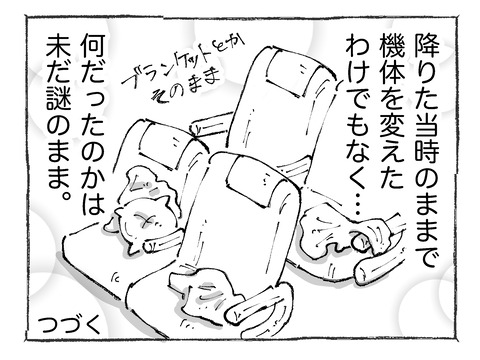 降りた当時のままで
機体を変えた
わけでもなく…
ブランケットとか
そのまま
何だったのかは
未だ謎のまま。
つづく